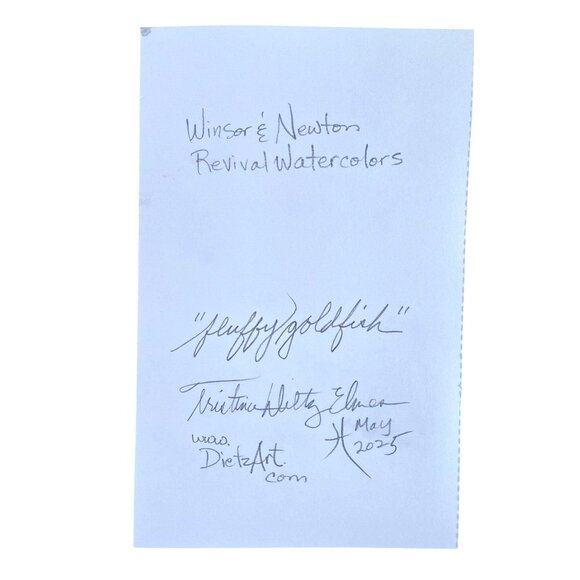 Winsor & Newton
Revival Watercolors
"fluffy goldfish"
Tristina Dietz Elmes
May
www.
2025
DietzArt.
com